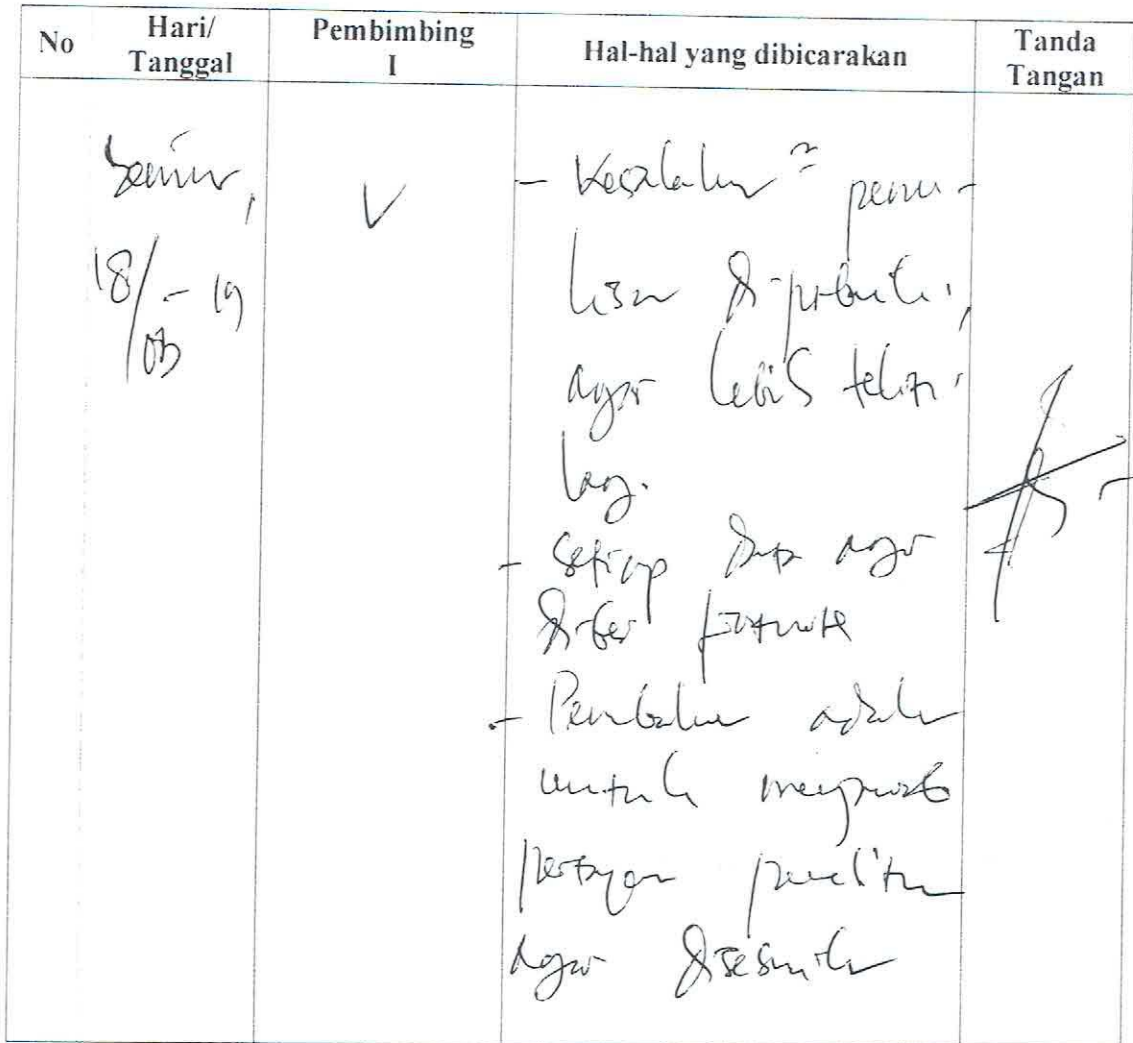 No
Hari/
Tanggal
Pembimbing
I
Hal-hal yang dibicarakan
Tanda
Tangan
Senin,
18/03 - 19
V
- Kesalahan² penu-
lisan diperbaiki,
agar lebih teliti
lagi.
- Setiap data agar
diberi footnote
- Pembahasan adalah
untuk menjawab
pertanyaan penelitian
agar disesuaikan